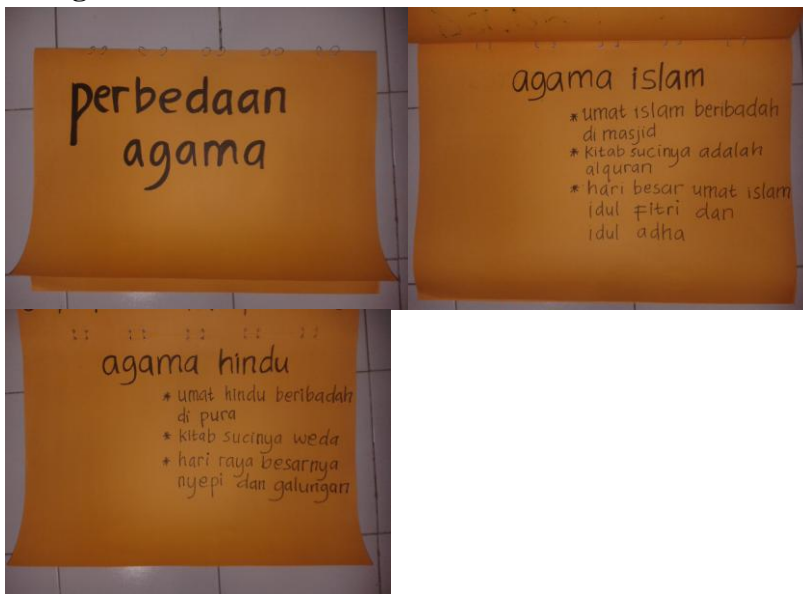 perbedaan
agama
agama islam
* umat islam beribadah
di masjid
* kitab sucinya adalah
alquran
* hari besar umat islam
idul Fitri dan
idul adha
agama hindu
* umat hindu beribadah
di pura
* kitab sucinya weda
* hari raya besarnya
nyepi dan galungan